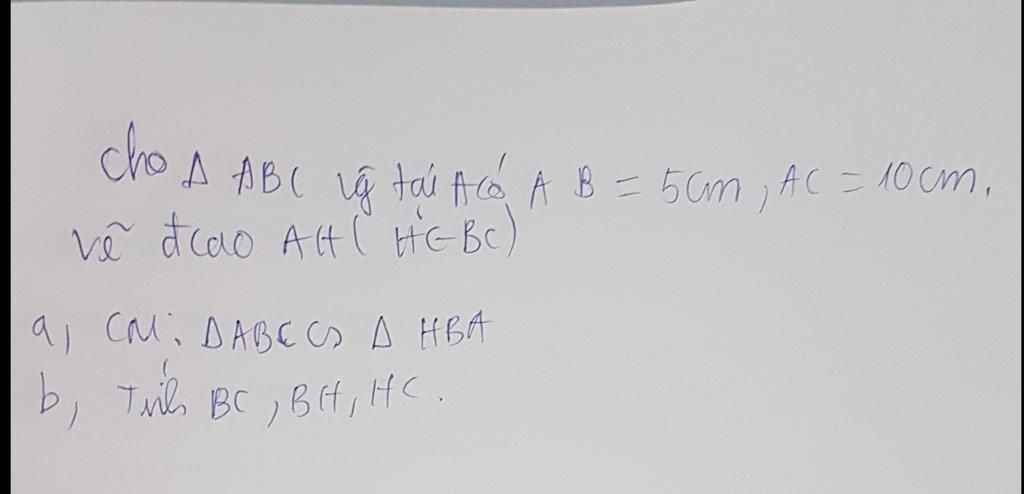 Cho Δ ABC vg tại A có A B = 5cm, AC = 10cm.
vẽ đcao AH ( H ∈ BC)
a, CM: Δ ABC ∽ Δ HBA
b, Tính BC, BH, HC.